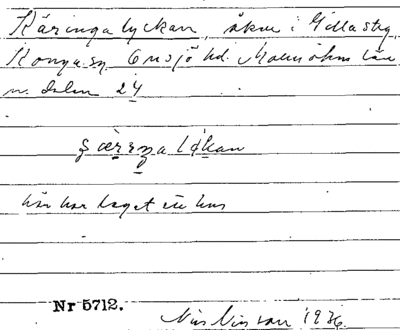 Käringalyckan, åker i Gillastig,
Konga sn. Onsjö hd. Malmöhus län
n. delen 24
särrnalykan
här har legat ett hus
Nr 5712.
Nils Nilsson 1936